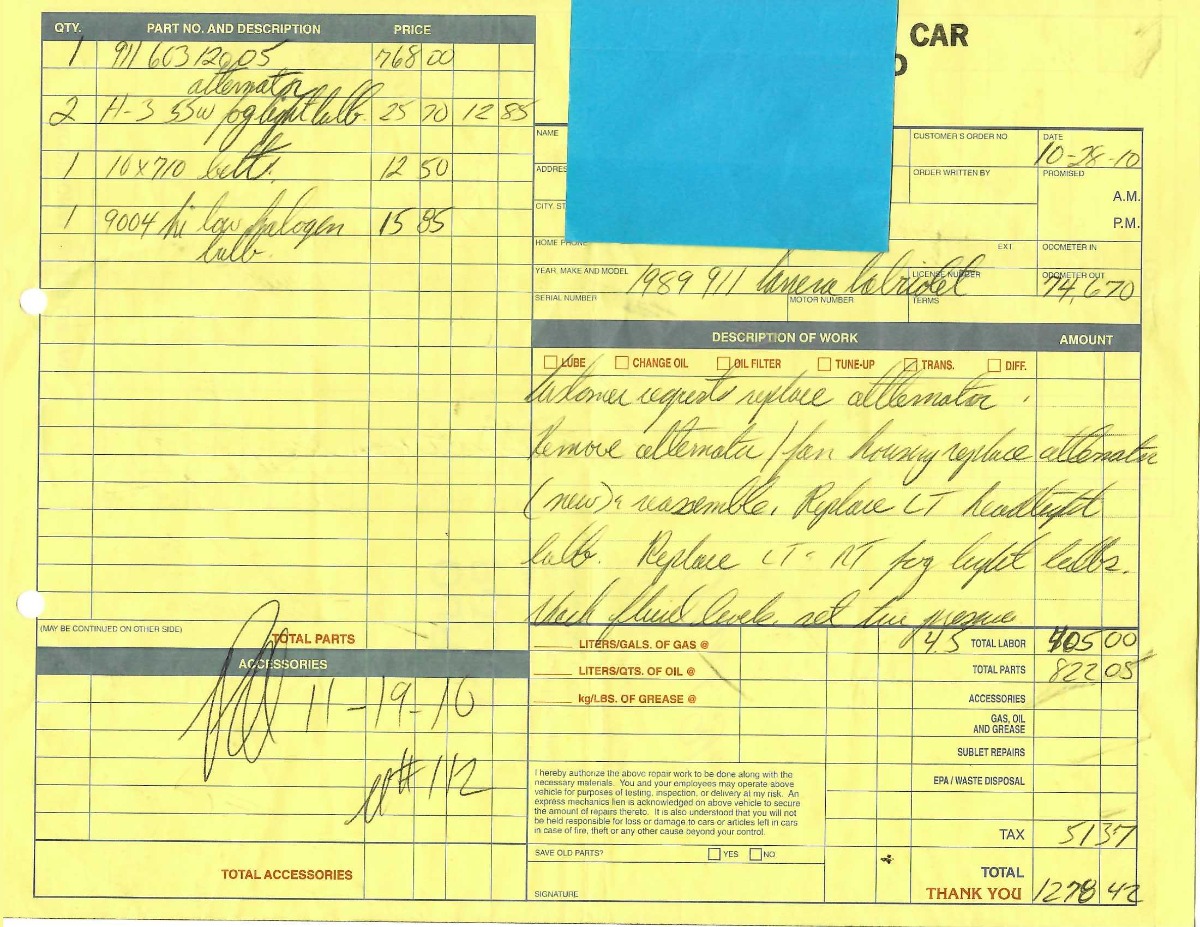 CAR
QTY. PART NO. AND DESCRIPTION PRICE
1 911 603 120 05 768 00
alternator
2 H-3 55w fog light bulb 25 70 12 85
1 10x710 belt. 12 50
1 9004 hi low halogen 15 85
bulb.
(MAY BE CONTINUED ON OTHER SIDE)
TOTAL PARTS
ACCESSORIES
11-19-10
#112
TOTAL ACCESSORIES
NAME
CUSTOMER'S ORDER NO
DATE
10-28-10
ADDRES
ORDER WRITTEN BY
PROMISED
A.M.
P.M.
CITY, ST
HOME PHONE
EXT
ODOMETER IN
YEAR, MAKE AND MODEL 1989 911 Carrera Cabriolet
LICENSE NUMBER
ODOMETER OUT
74,670
SERIAL NUMBER
MOTOR NUMBER
TERMS
DESCRIPTION OF WORK AMOUNT
LUBE CHANGE OIL OIL FILTER TUNE-UP TRANS. DIFF.
Customer requests replace alternator.
Remove alternator / fan housing replace alternator
(new) & reassemble. Replace LT headlight
bulb. Replace LT - RT fog light bulbs.
Check fluid levels, set tire pressure
LITERS/GALS. OF GAS @ 4.5 TOTAL LABOR 405 00
LITERS/QTS. OF OIL @ TOTAL PARTS 822 05
kg/LBS. OF GREASE @ ACCESSORIES
GAS, OIL
AND GREASE
SUBLET REPAIRS
EPA / WASTE DISPOSAL
I hereby authorize the above repair work to be done along with the
necessary materials. You and your employees may operate above
vehicle for purposes of testing, inspection, or delivery at my risk. An
express mechanics lien is acknowledged on above vehicle to secure
the amount of repairs thereto. It is also understood that you will not
be held responsible for loss or damage to cars or articles left in cars
in case of fire, theft or any other cause beyond your control.
TAX 51 37
SAVE OLD PARTS? YES NO
SIGNATURE
TOTAL
THANK YOU 1278 42